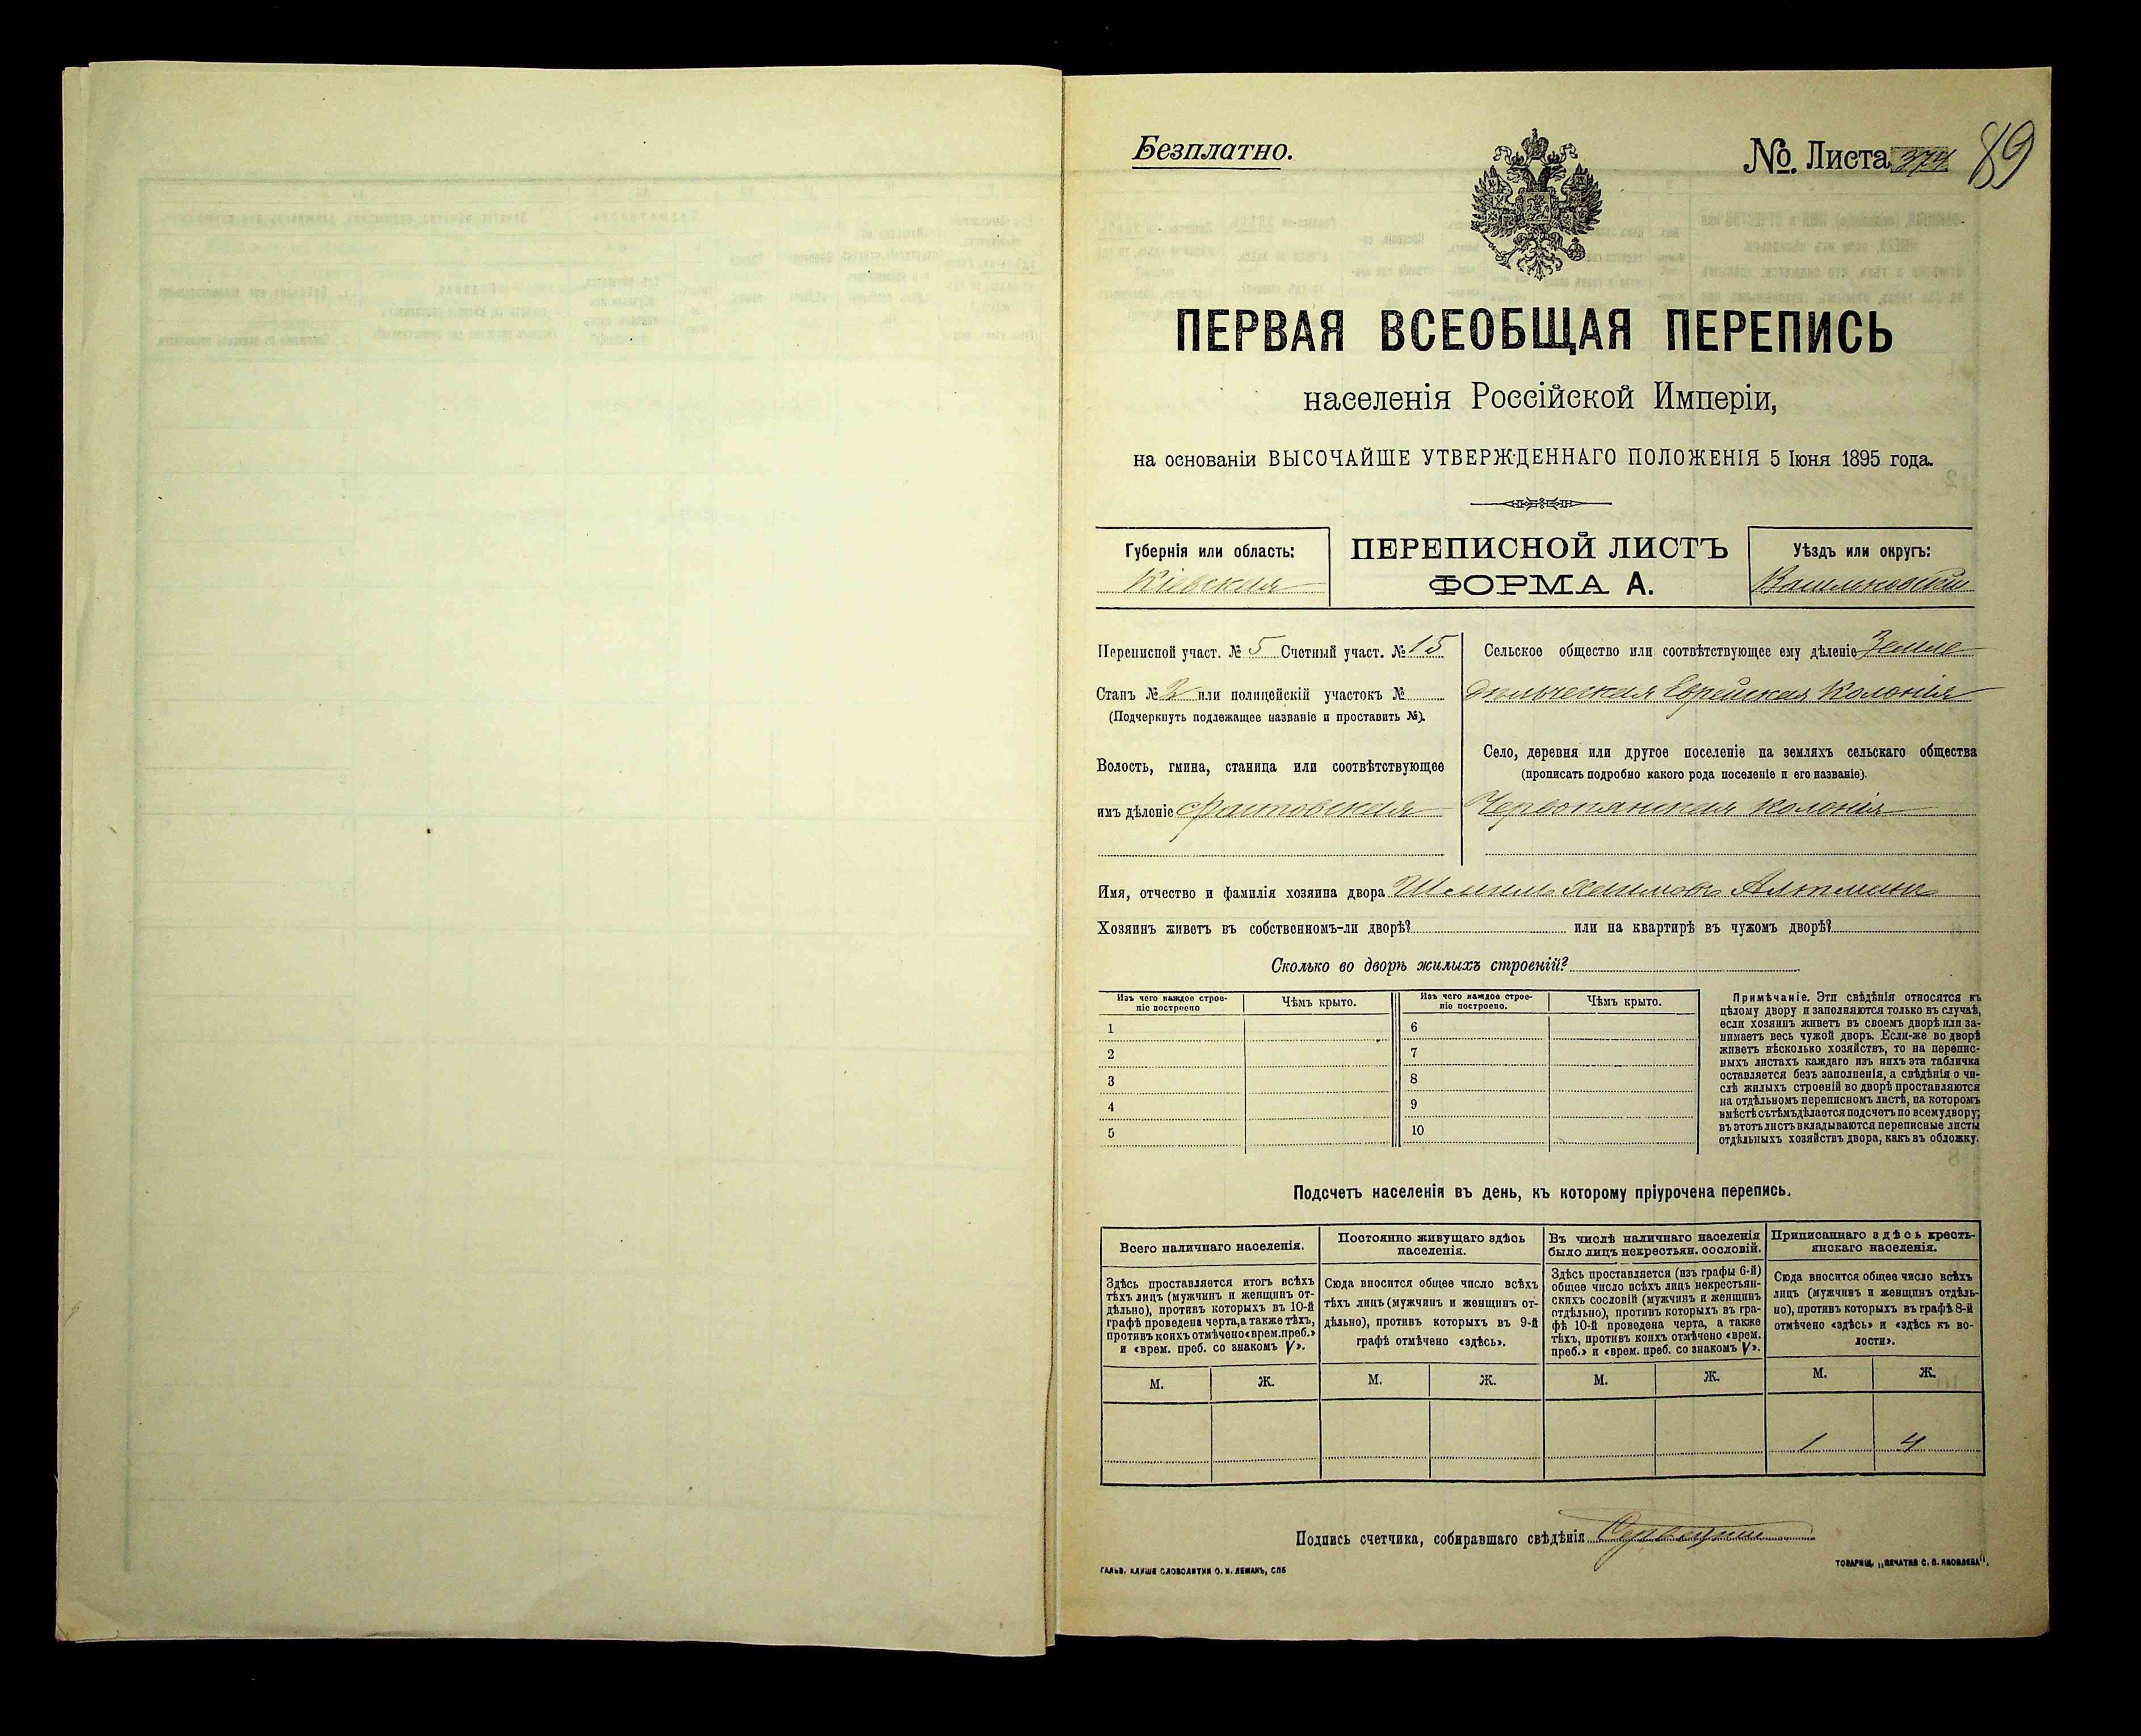 Безплатно.
№. Листа 374 89
ПЕРВАЯ ВСЕОБЩАЯ ПЕРЕПИСЬ
населенія Россійской Имперіи,
на основаніи ВЫСОЧАЙШЕ УТВЕРЖДЕННАГО ПОЛОЖЕНІЯ 5 Іюня 1895 года.
Губернія или область:
Кіевская
ПЕРЕПИСНОЙ ЛИСТЪ
ФОРМА А.
Уѣздъ или округъ:
Васильковскій
Переписной участ. № 5 Счетный участ. № 15
Станъ № 2 или полицейскій участокъ №
(Подчеркнуть подлежащее названіе и проставить №).
Волость, гмина, станица или соотвѣтствующее
имъ дѣленіе
Сельское общество или соотвѣтствующее ему дѣленіе Земле
дѣльческая Еврейская Колонія
Село, деревня или другое поселеніе на земляхъ сельскаго общества
(прописать подробно какого рода поселеніе и его названіе).
Червонянская колонія
Имя, отчество и фамилія хозяина двора Шмиль Хаимовъ Альтманъ
Хозяинъ живетъ въ собственномъ-ли дворѣ? или на квартирѣ въ чужомъ дворѣ?
Сколько во дворѣ жилыхъ строеній?
Изъ чего каждое строе-
ніе построено
Чѣмъ крыто.
Изъ чего каждое строе-
ніе построено.
Чѣмъ крыто.
1 6
2 7
3 8
4 9
5 10
Примѣчаніе. Эти свѣдѣнія относятся къ
цѣлому двору и заполняются только въ случаѣ,
если хозяинъ живетъ въ своемъ дворѣ или за-
нимаетъ весь чужой дворъ. Если-же во дворѣ
живетъ нѣсколько хозяйствъ, то на перепис-
ныхъ листахъ каждаго изъ нихъ эта табличка
оставляется безъ заполненія, а свѣдѣнія о чи-
слѣ жилыхъ строеній во дворѣ проставляются
на отдѣльномъ переписномъ листѣ, на которомъ
вмѣстѣ съ тѣмъ дѣлается подсчетъ по всему двору;
въ этотъ листъ вкладываются переписные листы
отдѣльныхъ хозяйствъ двора, какъ въ обложку.
Подсчетъ населенія въ день, къ которому пріурочена перепись.
Всего наличнаго населенія.
Здѣсь проставляется итогъ всѣхъ
тѣхъ лицъ (мужчинъ и женщинъ от-
дѣльно), противъ которыхъ въ 10-й
графѣ проведена черта, а также тѣхъ,
противъ коихъ отмѣчено «врем. преб.»
и «врем. преб. со знакомъ V».
М. Ж.
Постоянно живущаго здѣсь
населенія.
Сюда вносится общее число всѣхъ
тѣхъ лицъ (мужчинъ и женщинъ от-
дѣльно), противъ которыхъ въ 9-й
графѣ отмѣчено «здѣсь».
М. Ж.
Въ числѣ наличнаго населенія
было лицъ некрестьян. сословій.
Здѣсь проставляется (изъ графы 6-й)
общее число всѣхъ лицъ некрестьян-
скихъ сословій (мужчинъ и женщинъ
отдѣльно), противъ которыхъ въ гра-
фѣ 10-й проведена черта, а также
тѣхъ, противъ коихъ отмѣчено «врем.
преб.» и «врем. преб. со знакомъ V».
М. Ж.
Приписаннаго здѣсь кресть-
янскаго населенія.
Сюда вносится общее число всѣхъ
лицъ (мужчинъ и женщинъ отдѣль-
но), противъ которыхъ въ графѣ 8-й
отмѣчено «здѣсь» и «здѣсь къ во-
лости».
М. Ж.
1 4
Подпись счетчика, собиравшаго свѣдѣнія
ГАЛЬВ. КЛИШЕ СЛОВОЛИТНИ О. И. ЛЕМАНЪ, СПБ
ТОВАРИЩ. „ПЕЧАТНЯ С. П. ЯКОВЛЕВА".